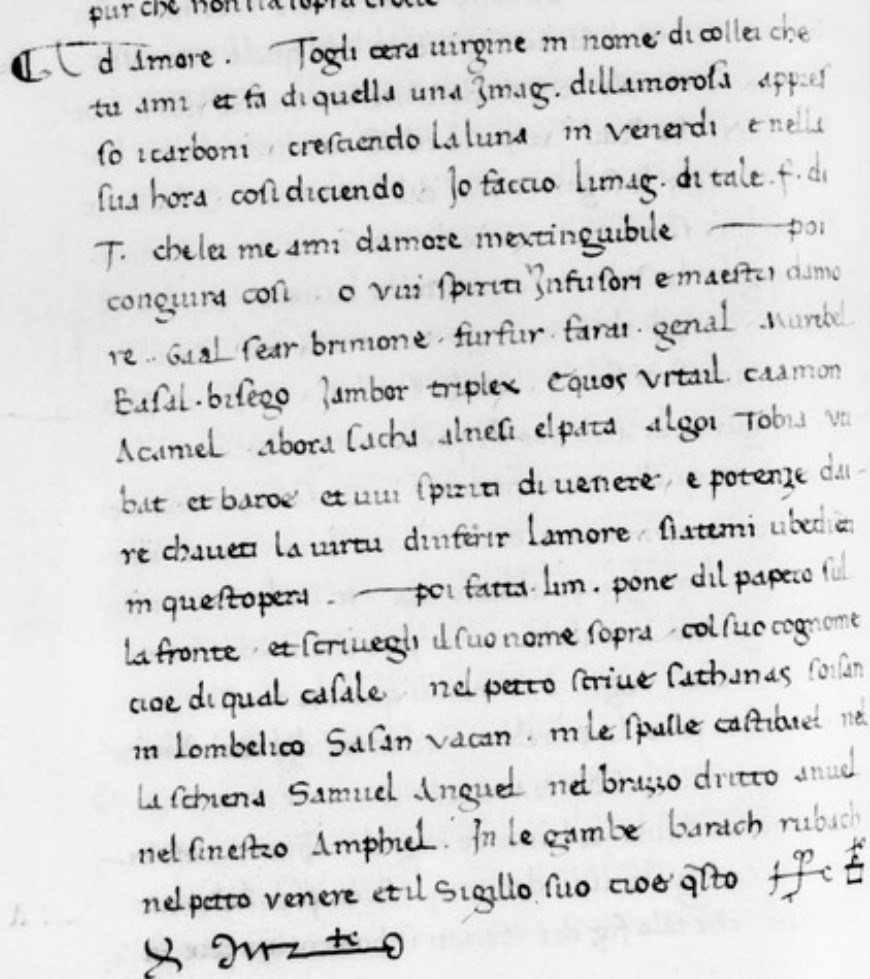 pur che non sia sopra croce
d Amore . Togli cera uirgine in nome di collei che
tu ami et fa di quella una Imag. dillamorosa appres
so i carboni crescendo la luna in venerdi e nella
sua hora cosi diciendo Io faccio limag. di tale .f. di
T. che lei me ami damore inextinguibile poi
congiura cosi o vui spiriti Infusori e maestri damo
re .. Gaal sear brimone furfur farai genal
Basal. bisego Jambor triplex Equos Vrtail caamon
Acamel abora sacha alnesi elpata algoi Tobia vu
bat et baroe et uui spiriti di uenere, e potenze dai-
re chaueti la uirtu dinferir lamore, siatemi ubedien
in questopera . poi fatta lim . pone dil papero sul
la fronte et scriuegli il suo nome sopra col suo cognome
cioe di qual casale nel petto scriue sathanas soisan
in lombelico Sasan vacan . in le spalle castibuel nel
la schiena Samuel Anguel nel brazzo dritto anuel
nel sinestro Amphiel . In le gambe barach rubach
nel petto venere et il Sigillo suo cioe qsto